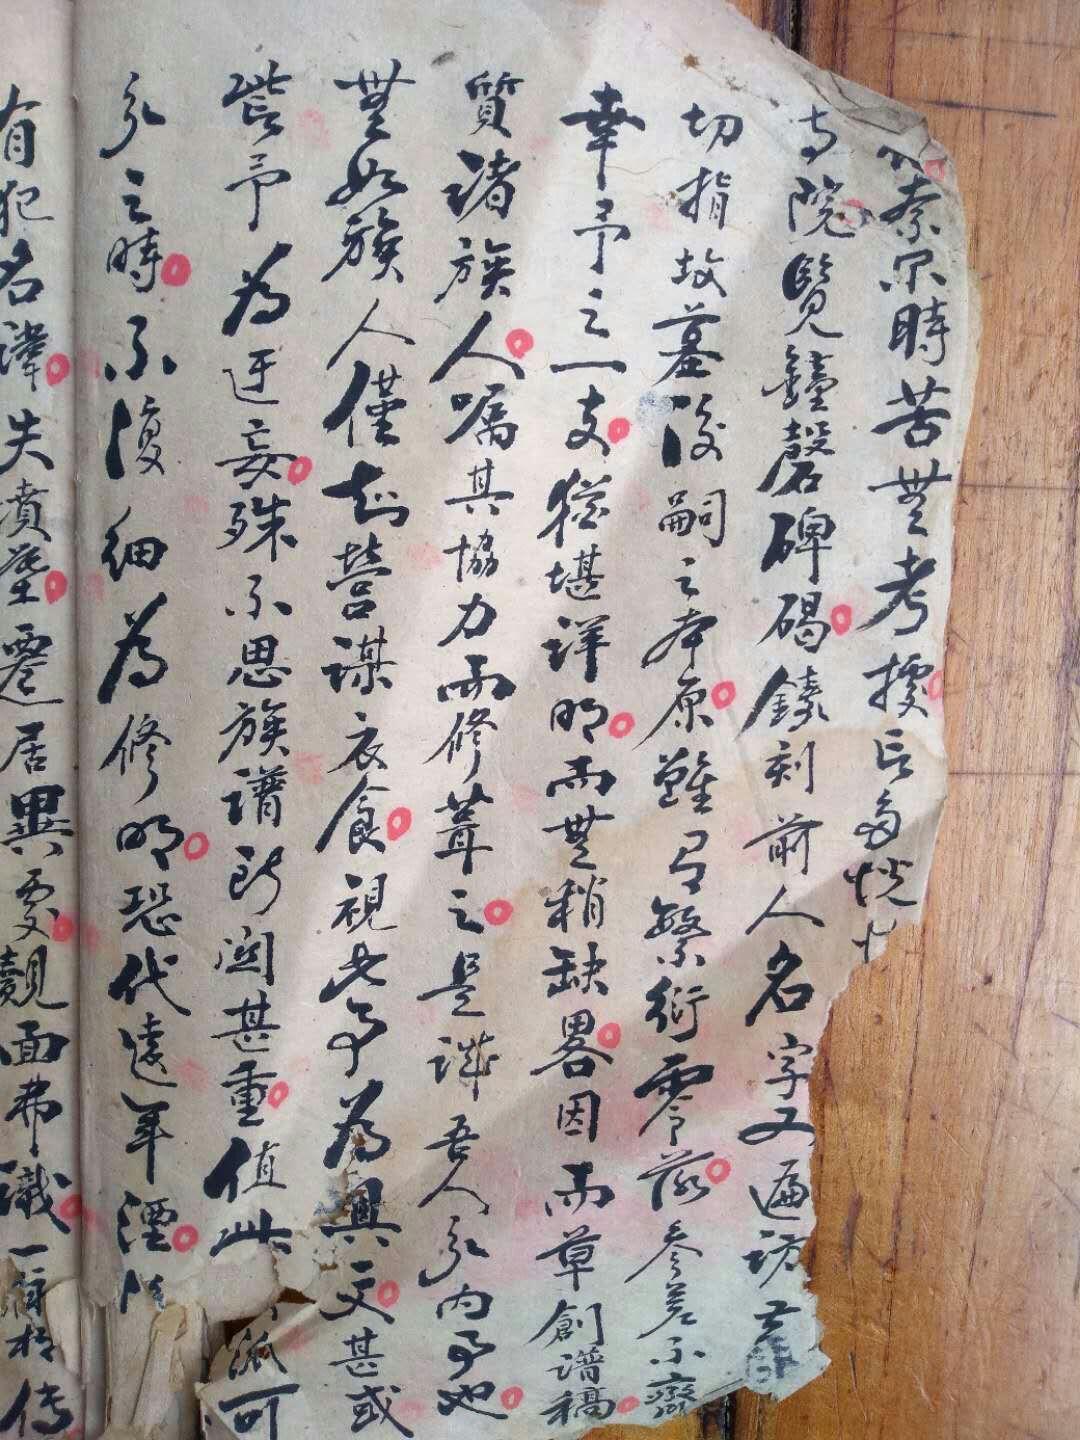 奈尔時苦無考據后多恍
寺院覽鐘磬碑碣鐫刻前人名字又遍訪
切指故墓後嗣之本原雖有繁衍零落参差不齊
幸予之一支猶堪詳明而無稍缺畧因而草創譜稿
質诸族人嘱其協力而修葺之是誠吾人分内事也
無如族人僅知營謀衣食視此事為具文甚或
訾予為迂妄殊不思族譜所関甚重值此 派可
分之時不復細為修明恐代遠年湮
有犯名諱失墳塋遷居異處覿面弗識一宗相传